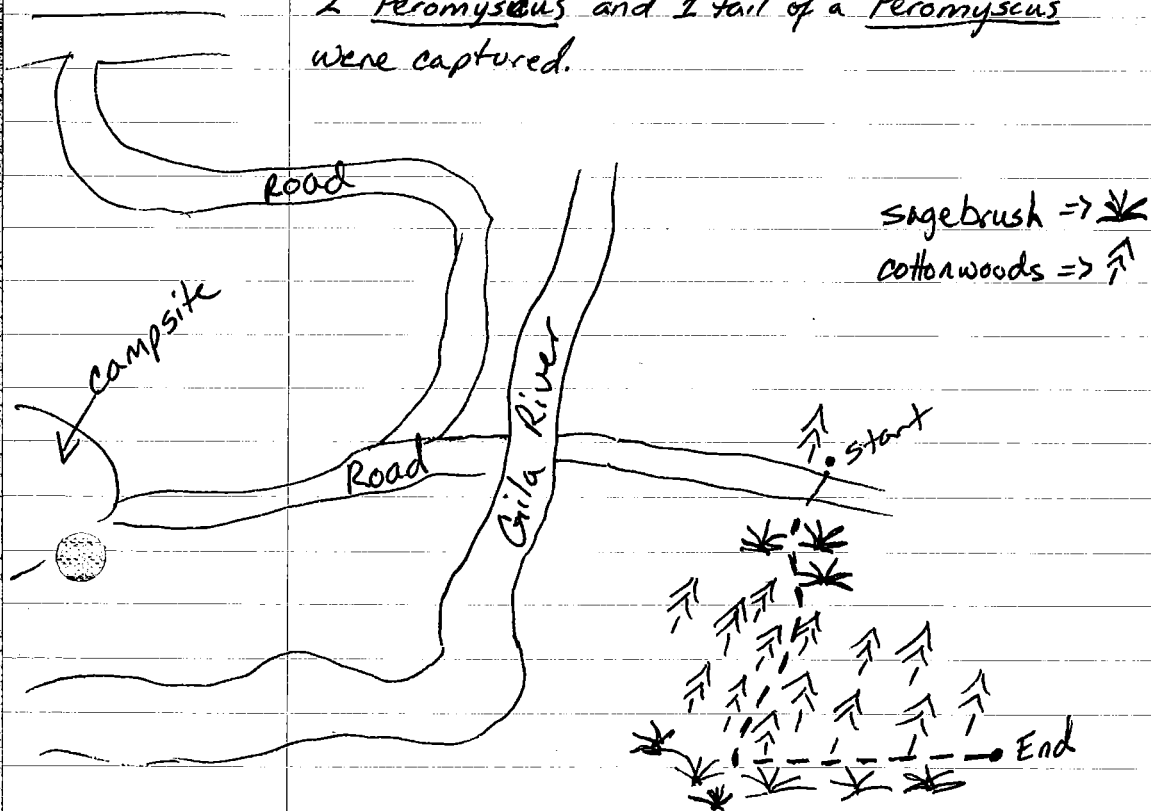 2 Peromyscus and 1 tail of a Peromyscus
were captured.
Road
sagebrush =>
cottonwoods =>
Campsite
Gila River
start
Road
End